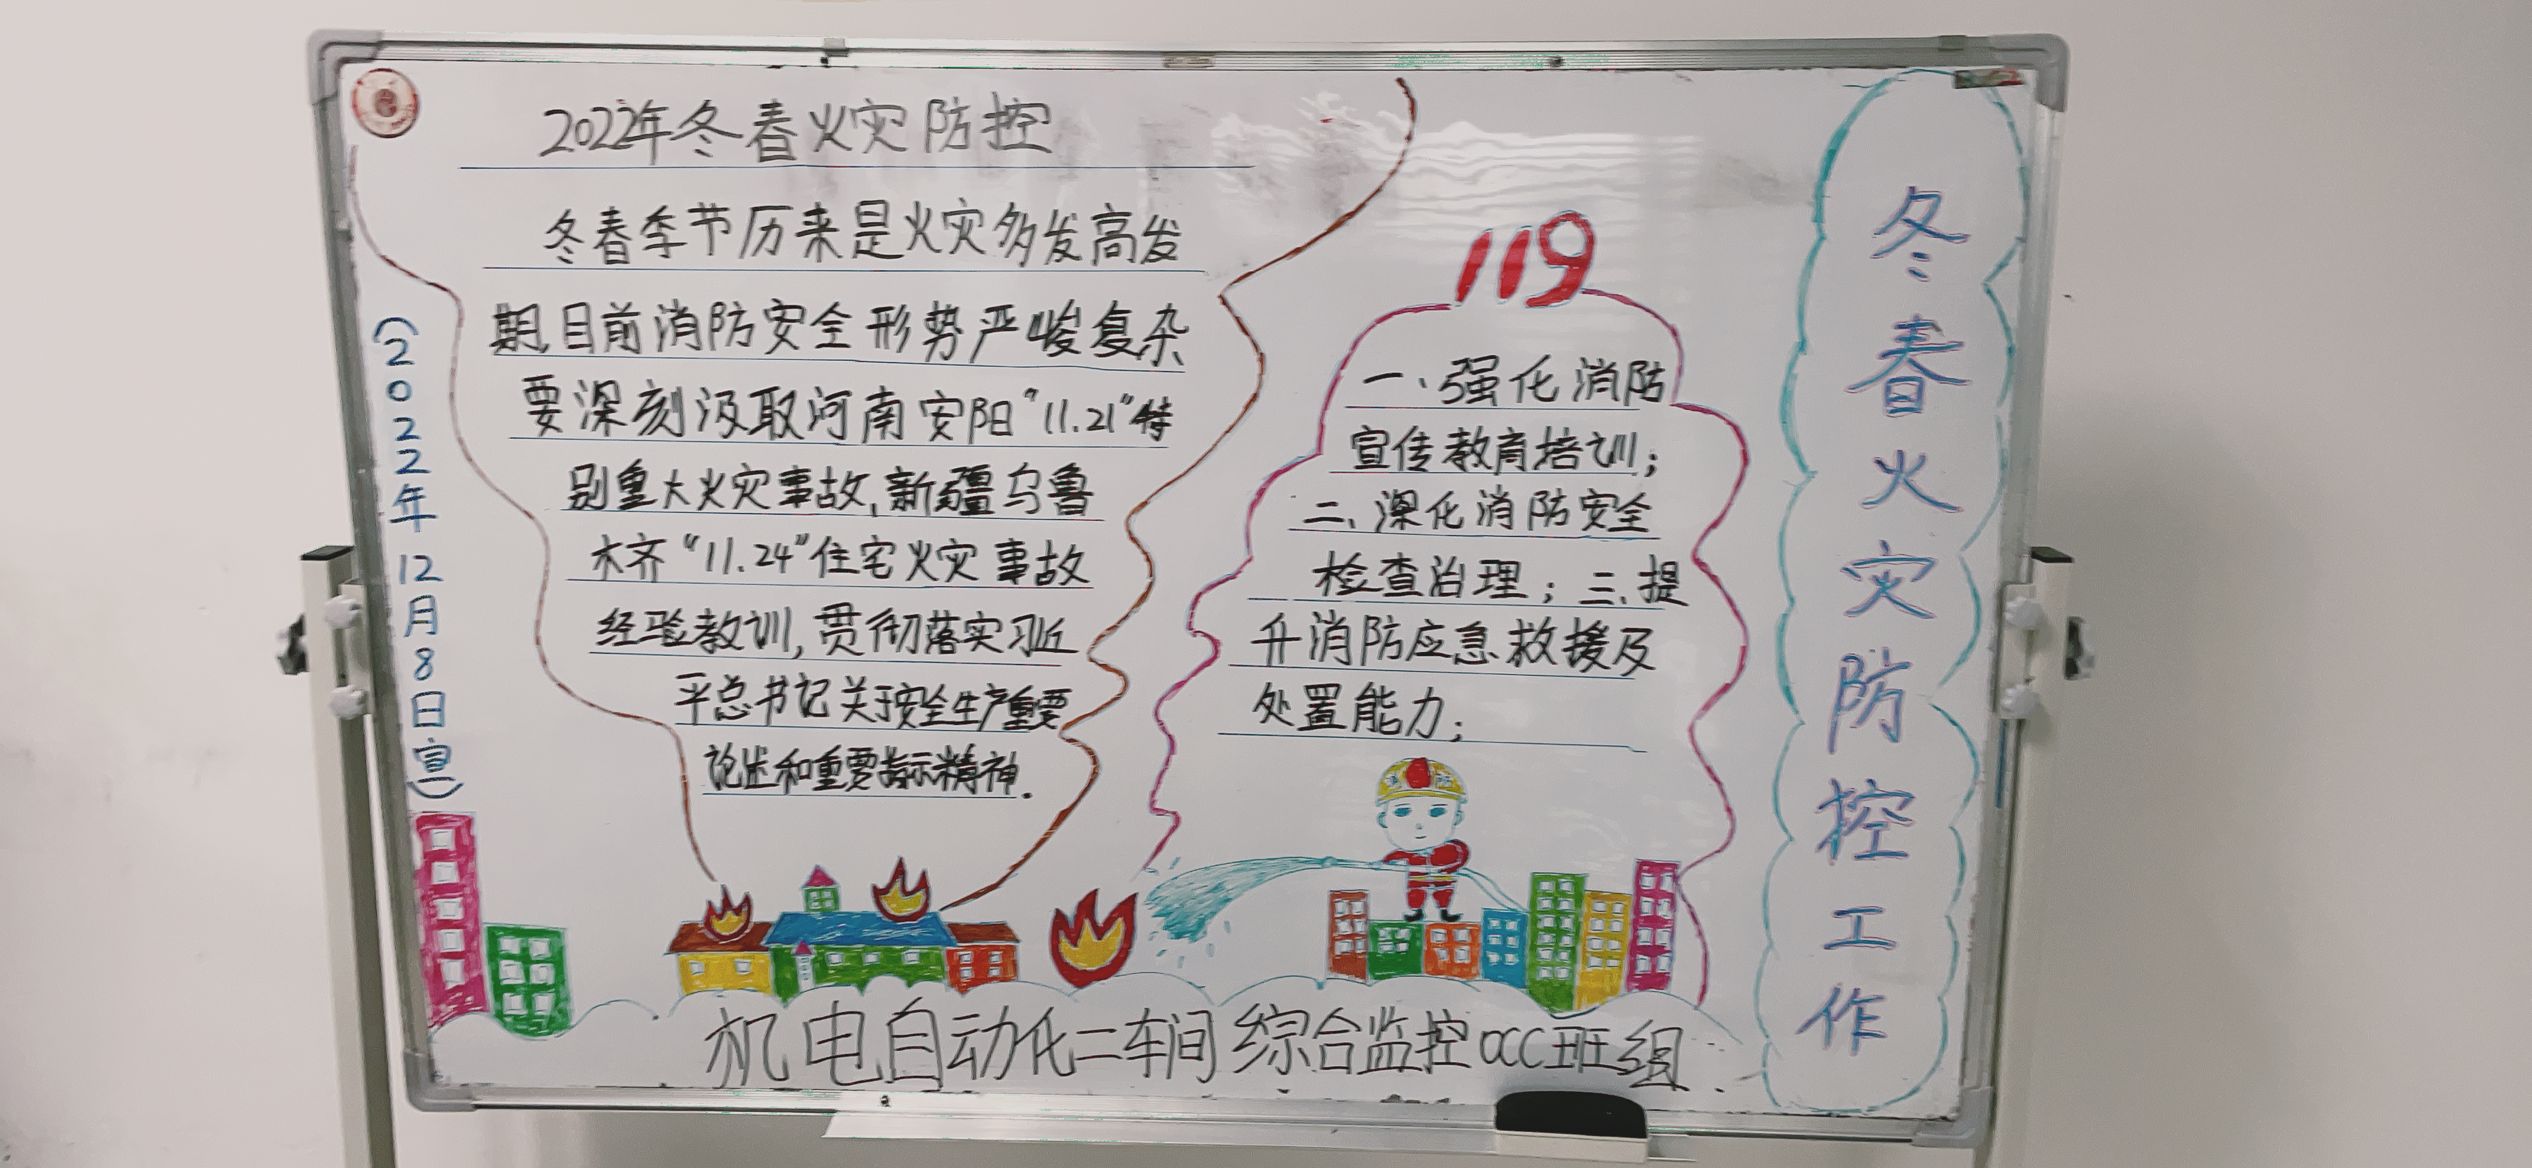 2022年冬春火灾防控
冬春季节历来是火灾多发高发
期,目前消防安全形势严峻复杂
要深刻汲取河南安阳“11.21”特
别重大火灾事故,新疆乌鲁
木齐“11.24”住宅火灾事故
经验教训,贯彻落实习近
平总书记关于安全生产重要
论述和重要指示精神.
(2022年12月8日宣)
119
一、强化消防
宣传教育培训;
二、深化消防安全
检查治理;三、提
升消防应急救援及
处置能力;
冬春火灾防控工作
机电自动化二车间综合监控OCC班组